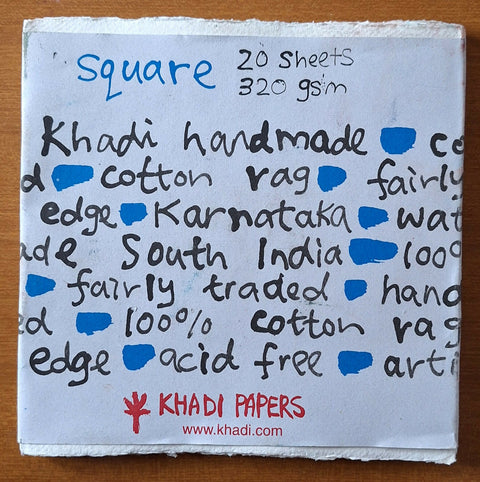 square 20 sheets
320 gsm
Khadi handmade co
d cotton rag fairly
edge Karnataka wat
ade South India 100%
fairly traded hand
ed 100% cotton rag
edge acid free arti
KHADI PAPERS
www.khadi.com